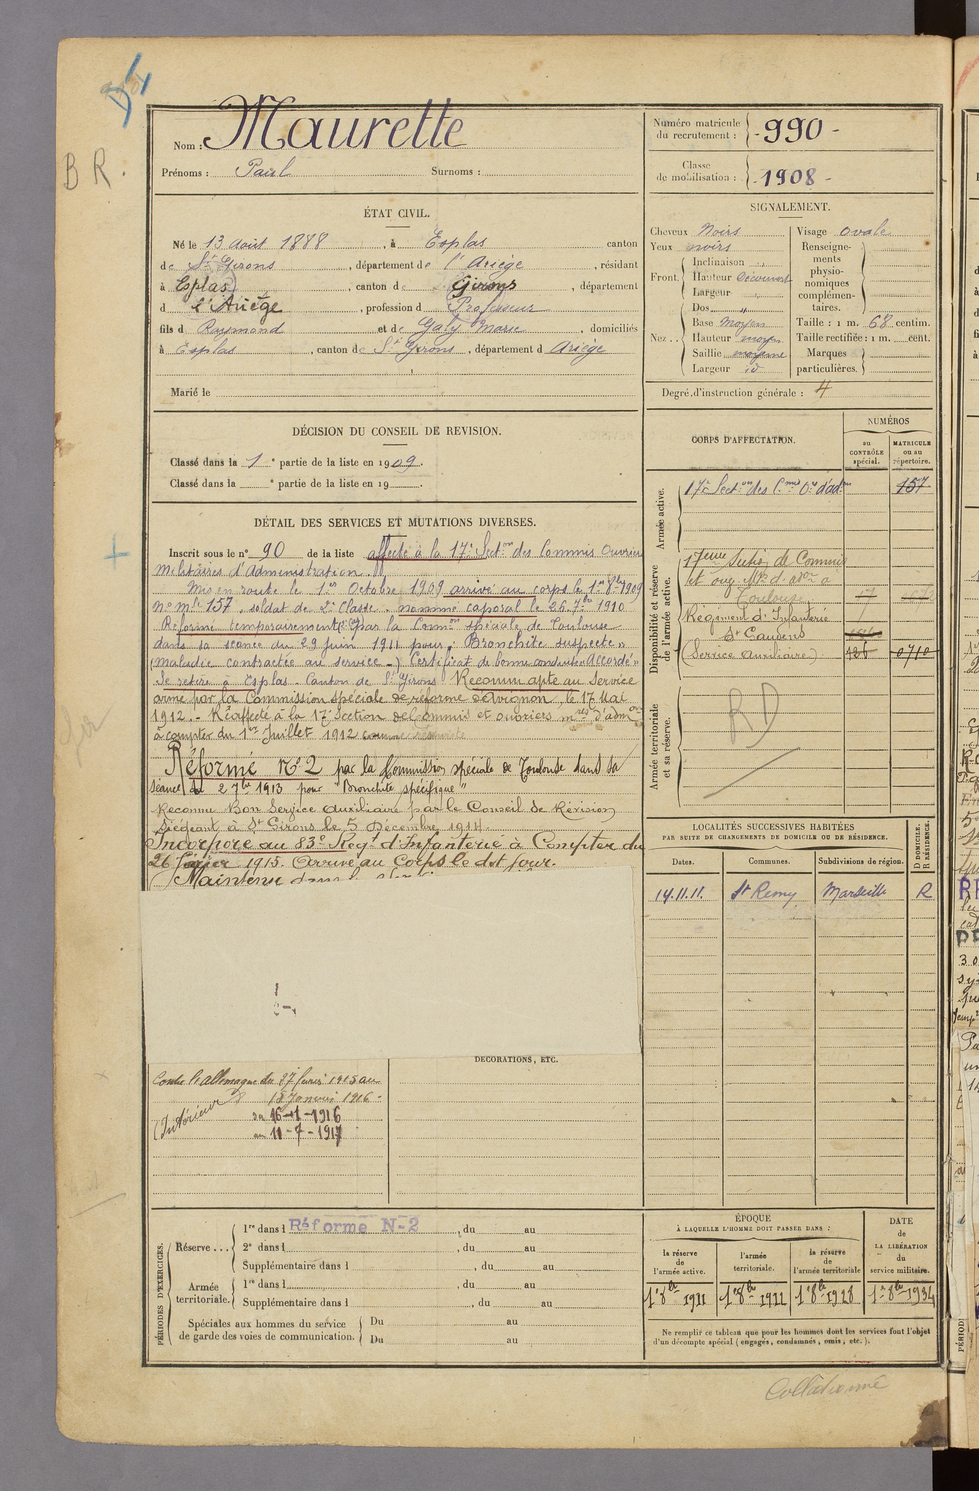 BR.
Nom : Maurette
Prénoms : Paul Surnoms :
ÉTAT CIVIL.
Né le 13 Août 1888, à Esplas canton
de St Girons, département de l'Ariège, résidant
à Esplas, canton de Girons, département
d l'Ariège, profession d Professeur
fils d Raymond et de Galy Marie, domiciliés
à Esplas, canton de St Girons, département d Ariège
Marié le
DÉCISION DU CONSEIL DE REVISION.
Classé dans la 1e partie de la liste en 1909.
Classé dans la e partie de la liste en 19
DÉTAIL DES SERVICES ET MUTATIONS DIVERSES.
Inscrit sous le n° 90 de la liste affecté à la 17e Secton des Commis Ouvriers
Militaires d'Administration.
Mis en route le 1er Octobre 1909 arrivé au corps le 1er 8bre 1909
No mle 157, soldat de 2e Classe. nommé caporal le 26.7bre 1910
Réformé temporairement par la Comon spéciale de Toulouse
dans sa séance du 29 Juin 1911 pour "Bronchite suspecte"
(Maladie contractée au service -) Certificat de bonne conduite "Accordé"
Se retire à Esplas Canton de St Girons Reconnu apte au service
armé par la Commission spéciale de réforme d'Avignon, le 17 Mai
1912. - Réaffecté à la 17e Section de Commis et ouvriers mres d'admon
à compter du 1er Juillet 1912
Réformé No 2 par la Commission spéciale de Toulouse dans sa
séance du 2 7bre 1913 pour "Bronchite spécifique"
Reconnu Bon Service Auxiliaire par le Conseil de Révision
siégeant à St Girons le 5 Décembre 1914.
Incorporé au 83e Régt d'Infanterie à Compter du
26 Février 1915. Arrivé au Corps le dit jour.
Maintenu dans le
DÉCORATIONS, ETC.
Contre l'Allemagne du 27 février 1915 au
15 Janvier 1916.
(Intérieur
du 16-1-1916
au 11-7-1917
PÉRIODES D'EXERCICES.
Réserve ... 1re dans l Réformé N-2, du au
2e dans l, du au
Supplémentaire dans l, du au
Armée territoriale. 1re dans l, du au
Supplémentaire dans l, du au
Spéciales aux hommes du service de garde des voies de communication. Du au
Du au
Numéro matricule du recrutement : -990-
Classe de mobilisation : -1908-
SIGNALEMENT.
Cheveux Noirs
Yeux noirs
Front. Inclinaison
Hauteur Découvert
Largeur
Nez .. Dos
Base Moyen
Hauteur moyen
Saillie moyenne
Largeur id
Visage ovale
Renseignements physionomiques complémentaires.
Taille : 1 m. 68 centim.
Taille rectifiée : 1 m. cent.
Marques particulières.
Degré d'instruction générale : 4
CORPS D'AFFECTATION.
NUMÉROS
au CONTRÔLE spécial.
MATRICULE ou au répertoire.
Armée active.
17e Secton des Cmis Ors d'adon 157
Disponibilité et réserve de l'armée active.
17eme Section de Commis
et ouv. Mres d'admon à
Toulouse 17
Régiment d'Infanterie
St Gaudens
(Service Auxiliaire) 0710
Armée territoriale et sa réserve.
RD
LOCALITÉS SUCCESSIVES HABITÉES
PAR SUITE DE CHANGEMENTS DE DOMICILE OU DE RÉSIDENCE.
Dates. Communes. Subdivisions de région. D DOMICILE. R RÉSIDENCE.
14.11.11. St Remy Marseille R
ÉPOQUE
À LAQUELLE L'HOMME DOIT PASSER DANS :
la réserve de l'armée active.
l'armée territoriale.
la réserve de l'armée territoriale
DATE de LA LIBÉRATION du service militaire.
1er 8bre 1911 1er 8bre 1922 1er 8bre 1928 1er 8bre 1934
Ne remplir ce tableau que pour les hommes dont les services font l'objet
d'un décompte spécial (engagés, condamnés, omis, etc.).
Collationné